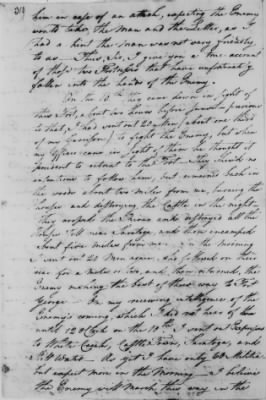 him in case of an attack, expecting the Enemy
would take the Man and the Letter, as I
had a hint the Man was not very friendly
to us. Thus, Sir, I give you a true account
of these two Fortresses that have unfortunately
fallen into the hands of the Enemy.
On the 10th they came down in sight of
this Fort, about two hours before sunset — previous
to that, I had sent out 20 Men (about one third
of my Garrison) to fight the Enemy, but when
my Officer came in sight of them he thought it
prudent to retreat to the Fort — They shewed no
intentions to follow him, but encamped back in
the woods about two miles from me, burning the
houses and destroying the Cattle in the night —
they crossed the River and destroyed all the
Houses till near Saratoga, and then encamped
about five miles from me — in the morning
I sent out 20 Men again, who followed on their
rear for a mile or two, and then returned, the
Enemy making the best of their way to Fort
George — On my receiving intelligence of the
Enemy's coming, which I did not hear of
until 12 oClock on the 10th I sent out Expresses
to White Creek, Saratoga, and
As yet I have only 60 Militia
but expect more in the Morning — I believe
the Enemy will March this way in the